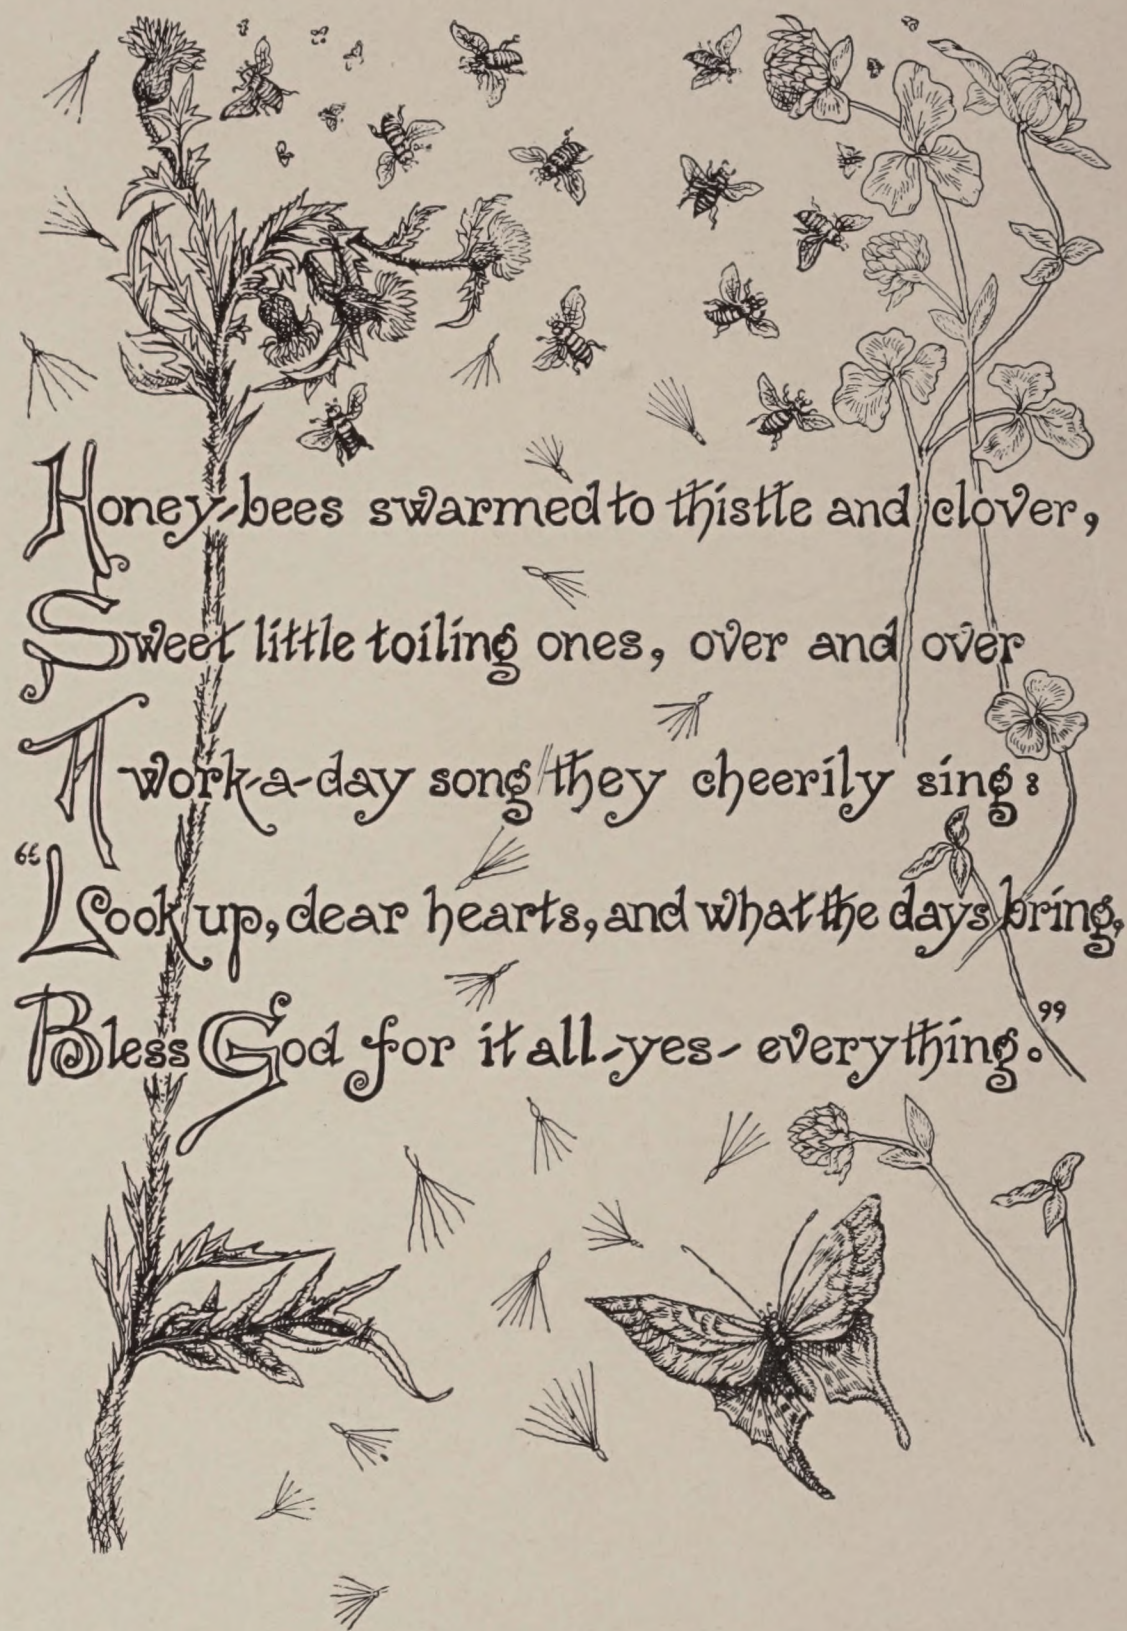 Honey-bees swarmed to thistle and clover,
Sweet little toiling ones, over and over
A work-a-day song they cheerily sing:
“Look up, dear hearts, and what the days bring,
Bless God for it all-yes- everything.”